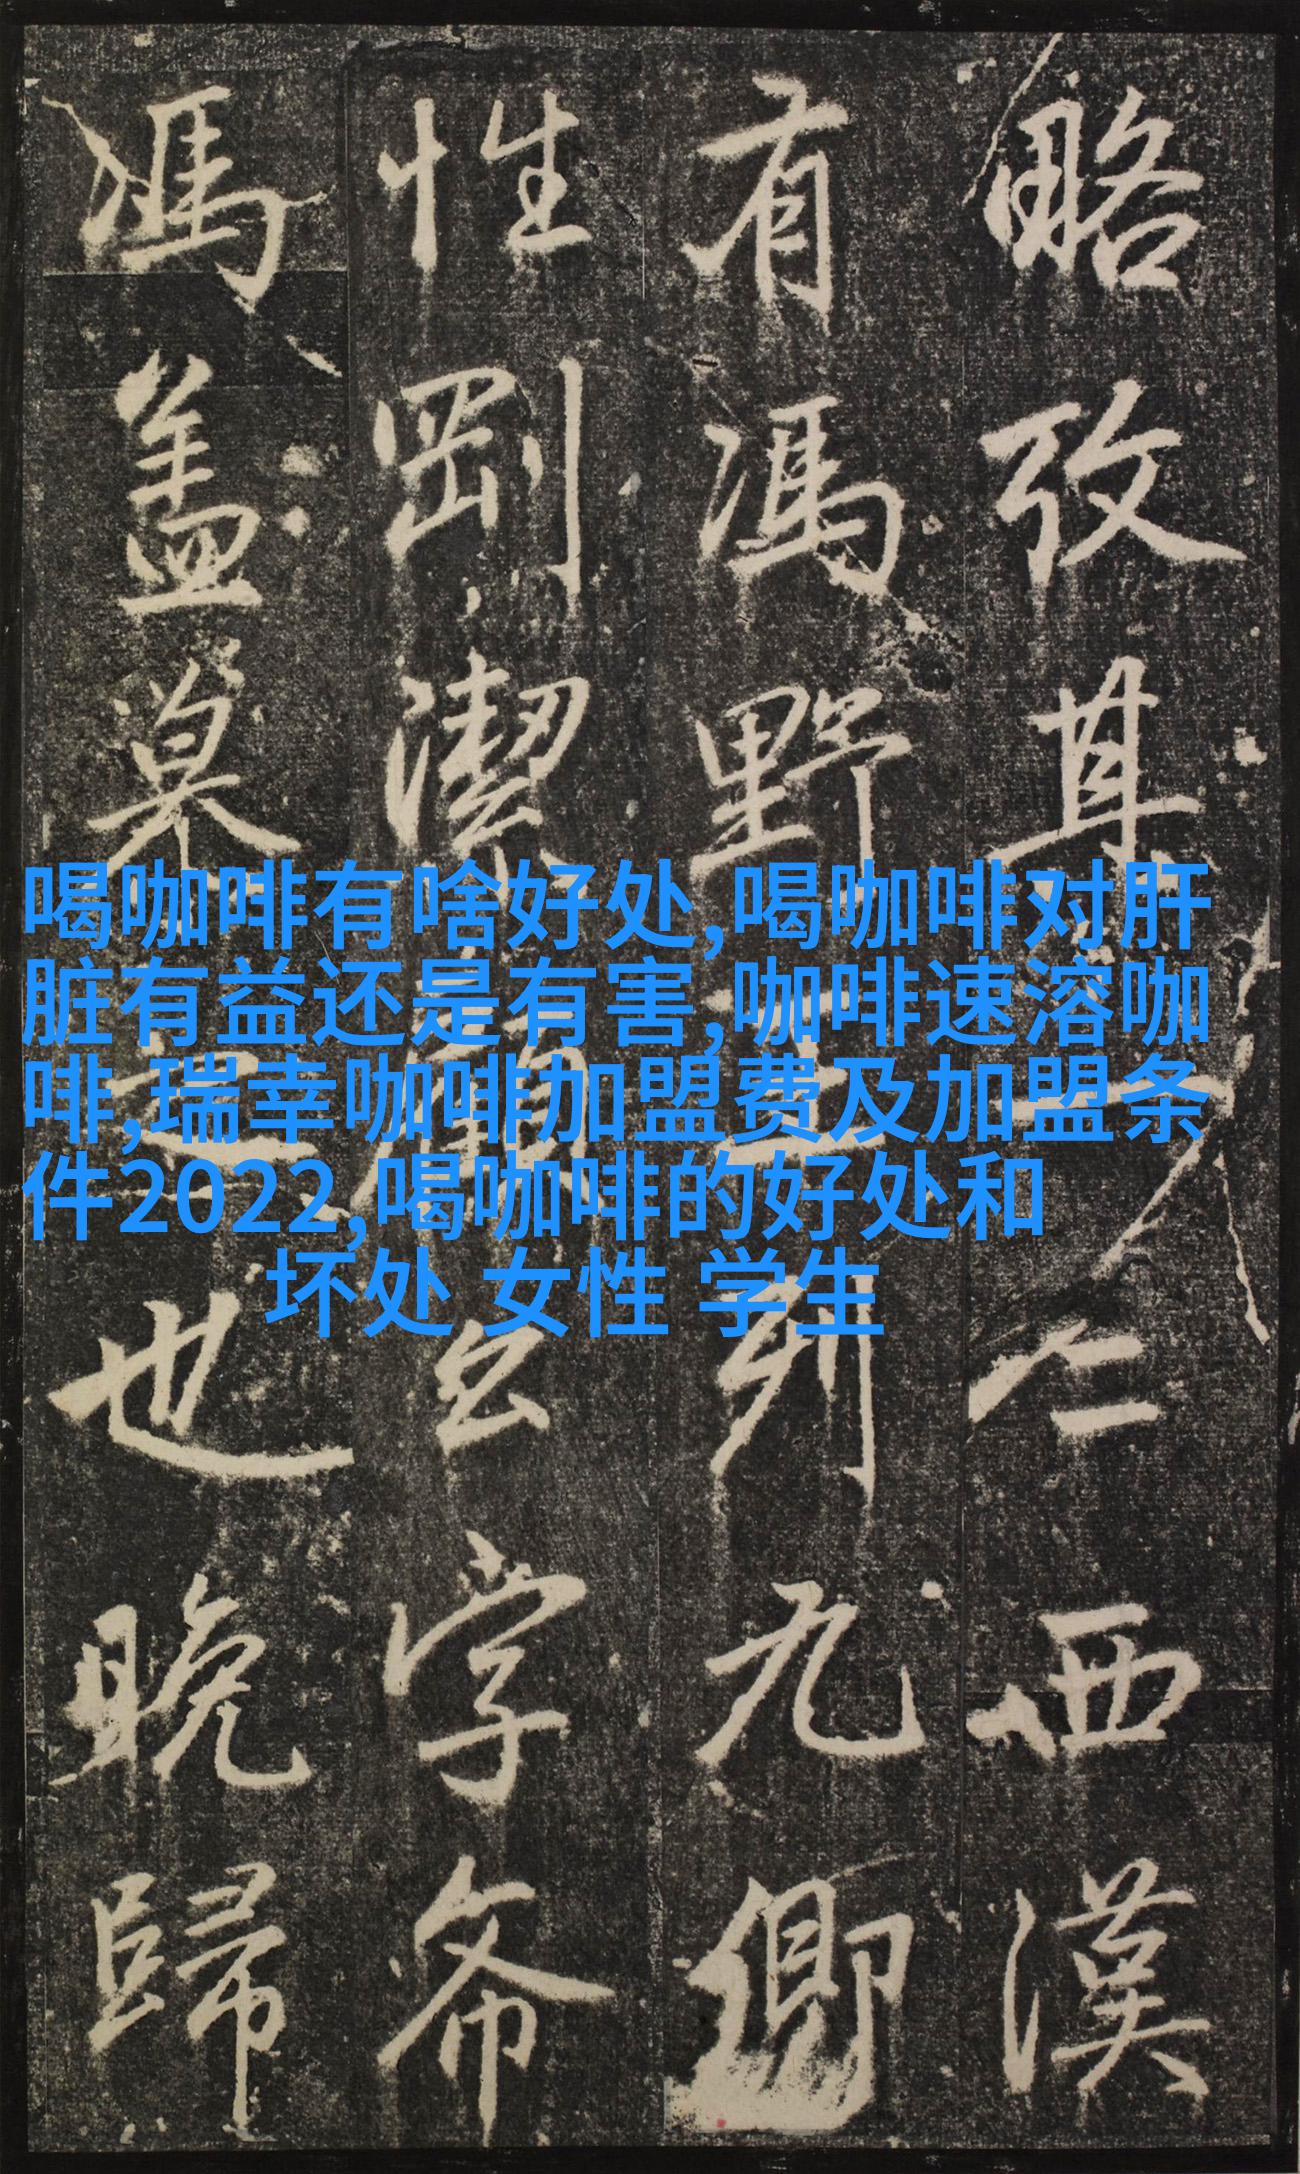 略攷其仁西漢
有馮野王列九卿
性剛潔字
馮盖慕之也晚歸
喝咖啡有啥好处,喝咖啡对肝
脏有益还是有害,咖啡速溶咖
啡,瑞幸咖啡加盟费及加盟条
件2022,喝咖啡的好处和
坏处 女性 学生